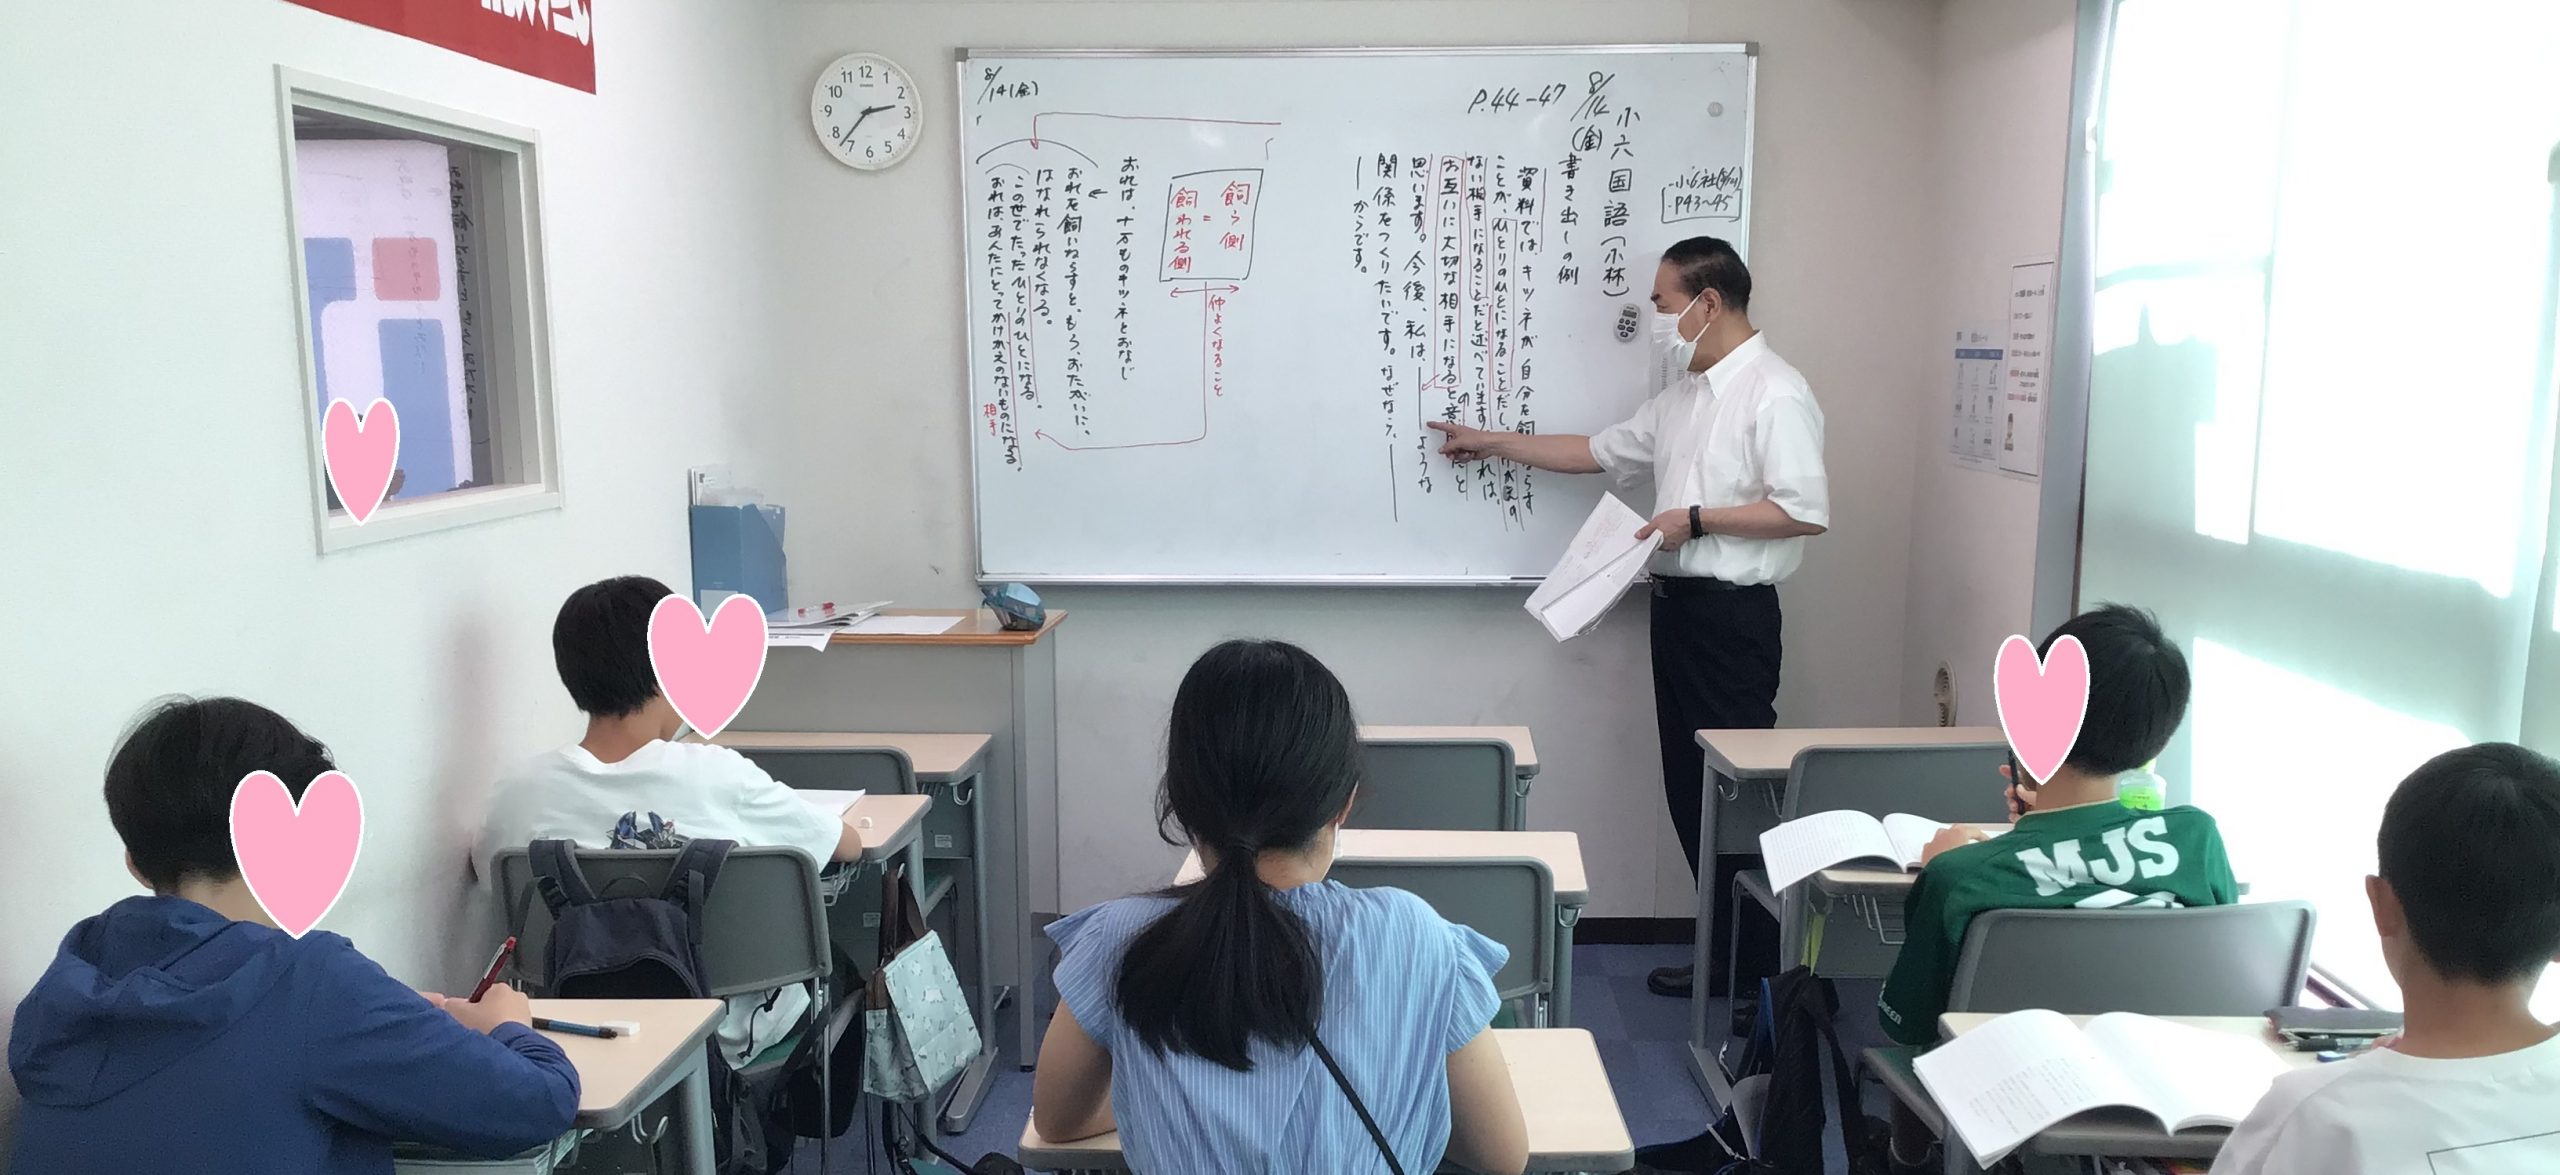 小六国語(小林)
8/14(金)
P.44-47
P43~45
書き出しの例
資料では、キツネが自分を飼
ことが、ひとりのひとになることだし、
ない相手になることだと述べています。
お互いに大切な相手になると
思います。今後、私は、――ような
関係をつくりたいです。なぜなら、――
――からです。
飼う側
=
飼われる側
仲よくなること
おれは、十万ものキツネとおなじ
おれを飼いならすと、もう、おたがいに、
はなれられなくなる。
この世でたったひとりのひとになる。
おれはあんたにとってかけがえのないものになる。
相手
8/14(金)
12
1
2
3
4
5
6
7
8
9
10
11
MJS